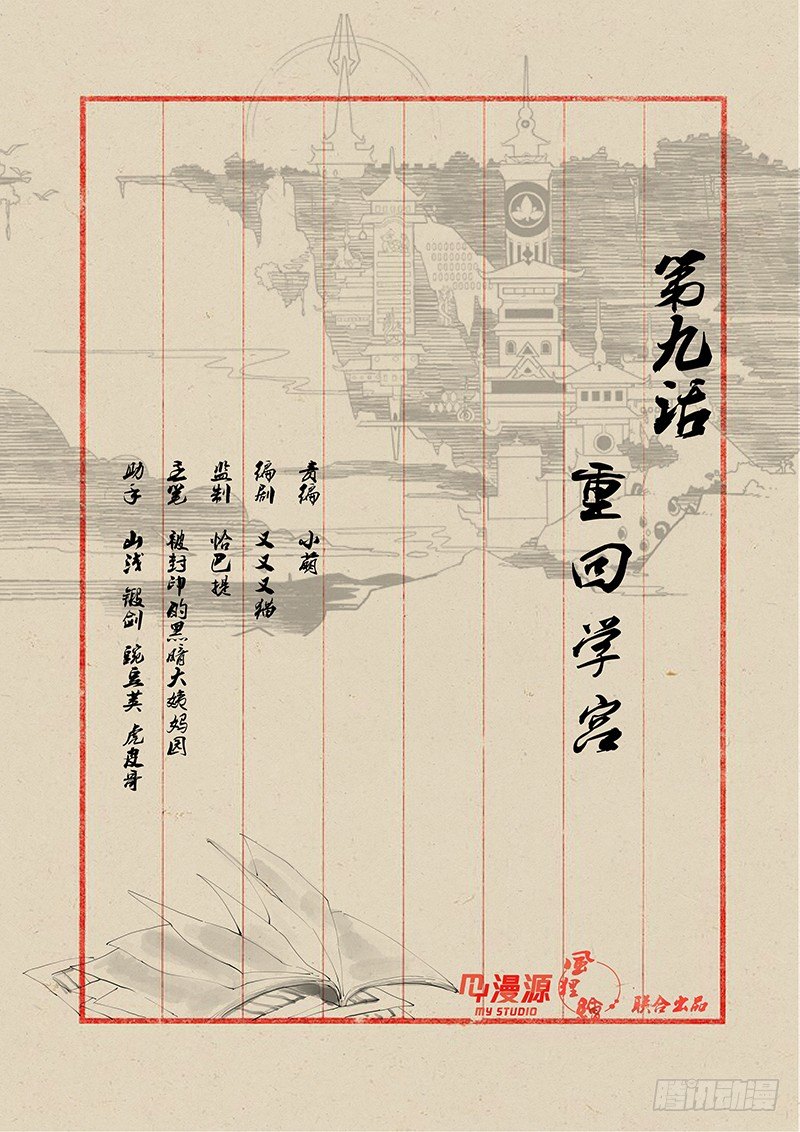 第九话
重回学宫
责编 小萌
编剧 又又又猫
监制 恰巴提
主笔 被封印的黑暗大姨妈园
助手 山浅 锻剑 豌豆荚 虎皮哥
漫源
MY STUDIO
风狸
联合出品
腾讯动漫